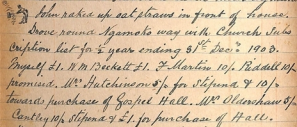 John raked up oat straws in front of house.
Drove round Ngamoko way with Church Subs
cription list for ½ year ending 31st Decr 1903.
Myself £1. W M Beckett £1. F Martin 10/- Riddell 10/-
promised. Mrs Hutchinson 5/- for Stipend & 10/-
towards purchase of Gospel Hall. Mrs Oldershaw 5/-
Cantley 10/- Stipend & £1 for purchase of Hall.